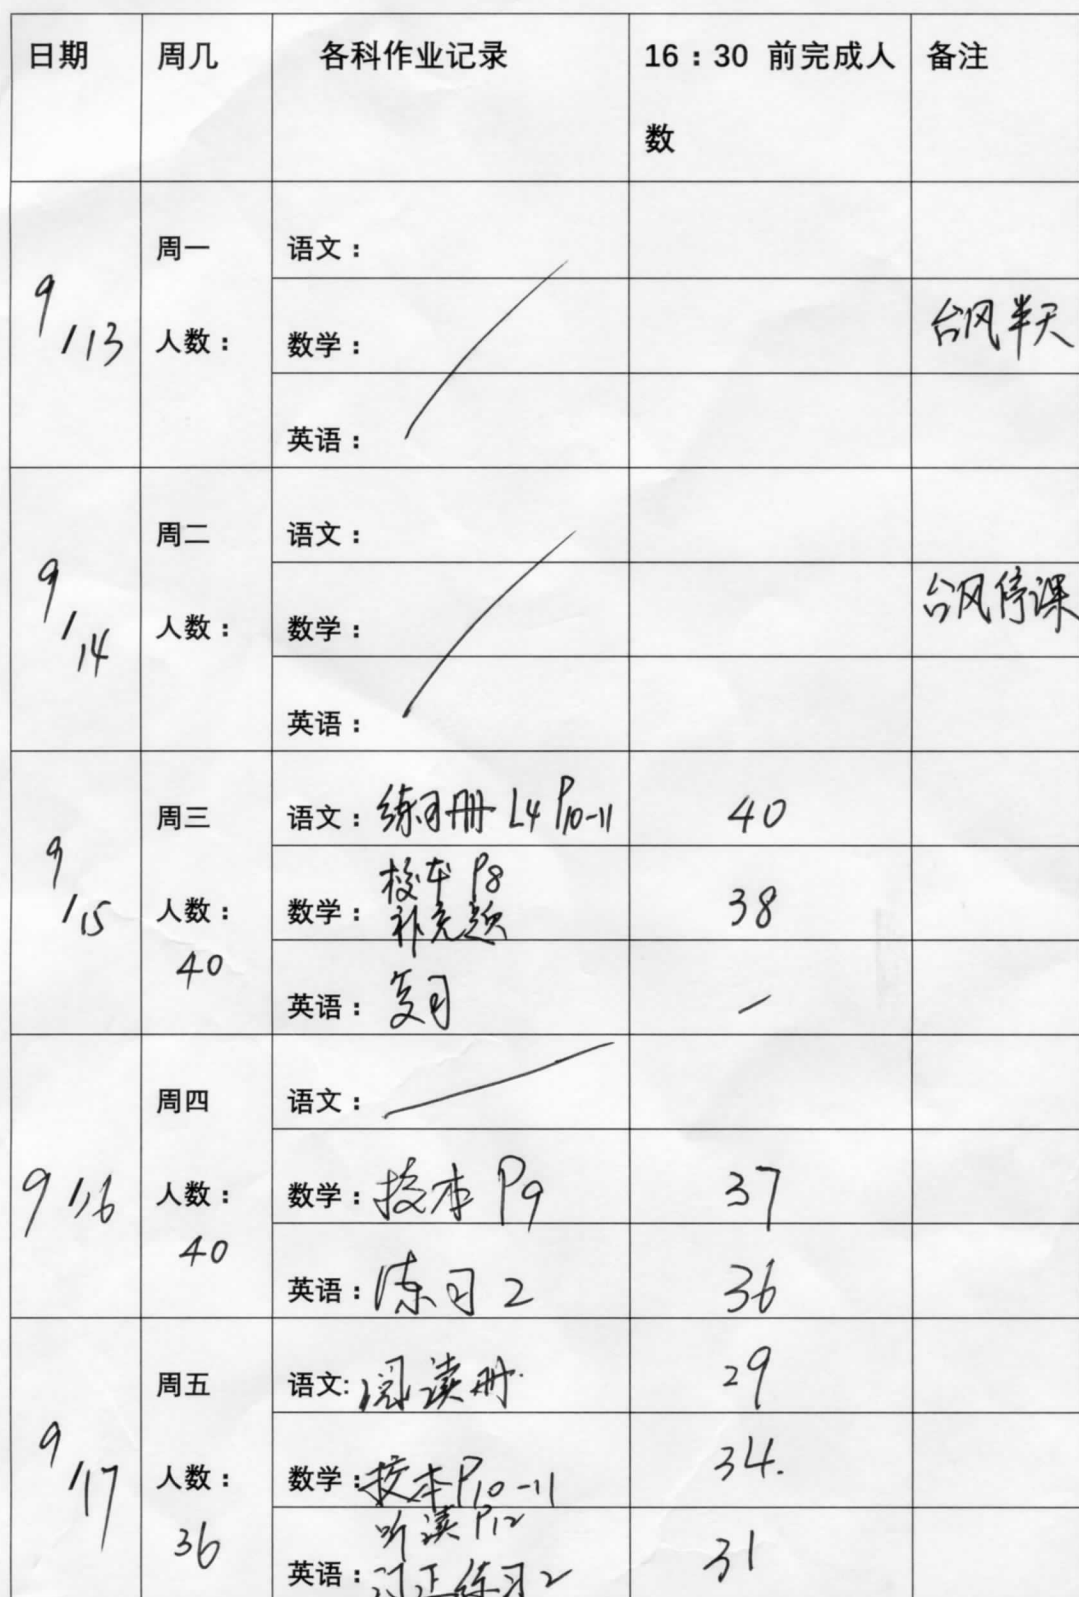 日期 周几 各科作业记录 16：30 前完成人数 备注
9/13 周一 人数：
语文：
数学： 台风半天
英语：
9/14 周二 人数：
语文：
数学： 台风停课
英语：
9/15 周三 人数：40
语文：练习册 L4 P10-11 40
数学：校本 P8 补充题 38
英语：复习 —
9/16 周四 人数：40
语文：
数学：校本 P9 37
英语：练习2 36
9/17 周五 人数：36
语文:阅读册. 29
数学：校本P10-11 34.
英语：听读P12 订正练习2 31